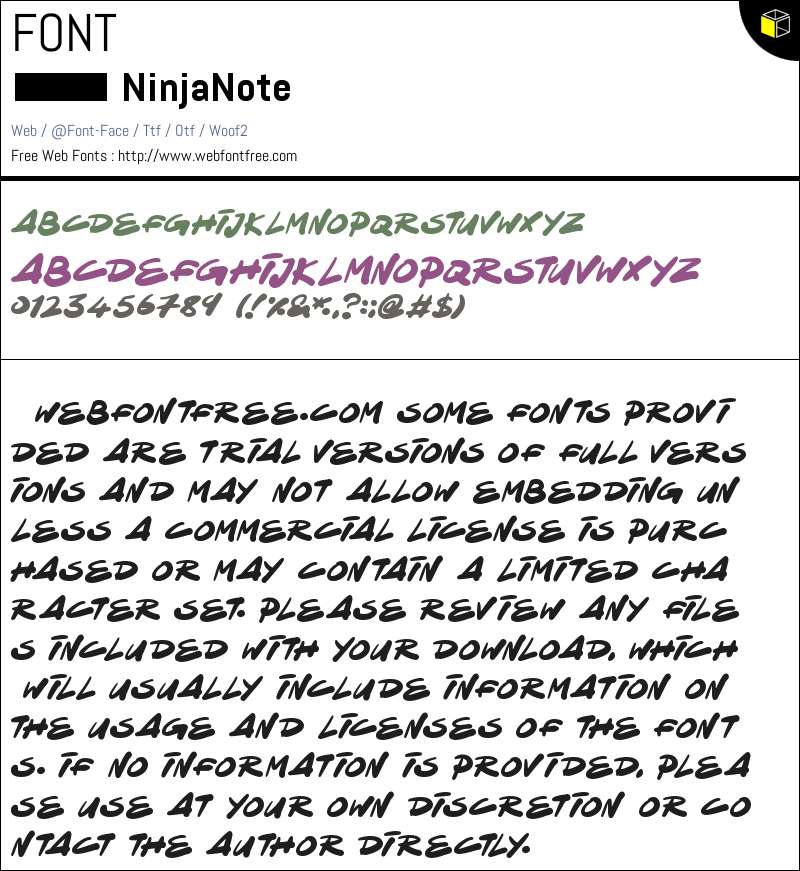 FONT
NinjaNote
Web / @Font-Face / Ttf / Otf / Woof2
Free Web Fonts : http://www.webfontfree.com
ABCDEFGHIJKLMNOPQRSTUVWXYZ
ABCDEFGHIJKLMNOPQRSTUVWXYZ
0123456789 (!%&*.,?:;@#$)
WEBFONTFREE.COM SOME FONTS PROVI
DED ARE TRIAL VERSIONS OF FULL VERS
IONS AND MAY NOT ALLOW EMBEDDING UN
LESS A COMMERCIAL LICENSE IS PURC
HASED OR MAY CONTAIN A LIMITED CHA
RACTER SET. PLEASE REVIEW ANY FILE
S INCLUDED WITH YOUR DOWNLOAD, WHICH
WILL USUALLY INCLUDE INFORMATION ON
THE USAGE AND LICENSES OF THE FONT
S. IF NO INFORMATION IS PROVIDED, PLEA
SE USE AT YOUR OWN DISCRETION OR CO
NTACT THE AUTHOR DIRECTLY.